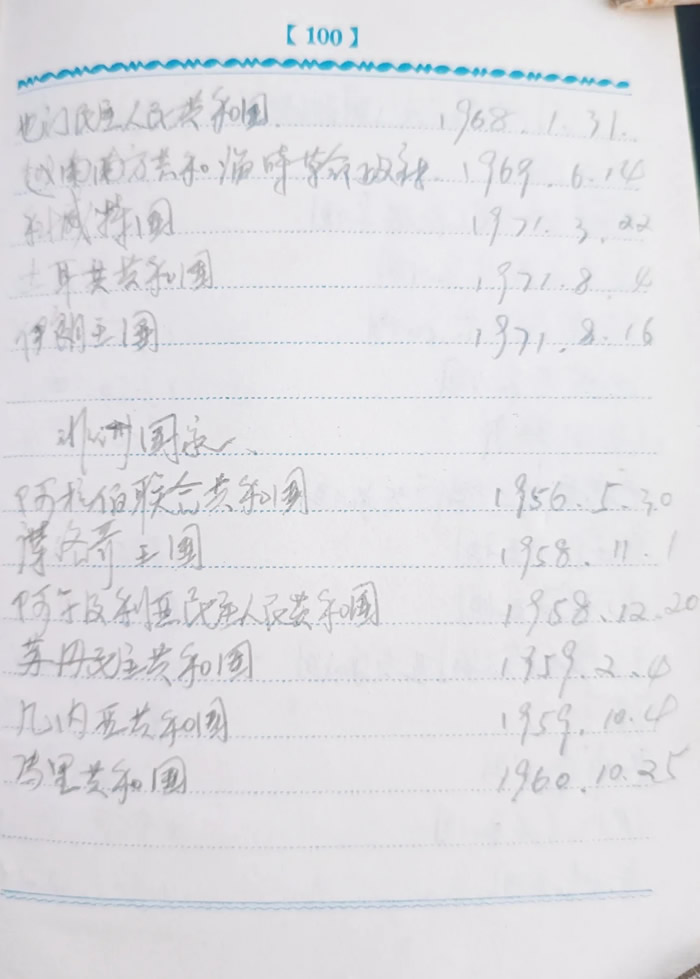 【100】
也门民主人民共和国. 1968.1.31.
越南南方共和临时革命政府 1969.6.14
科威特国 1971.3.22
土耳其共和国 1971.8.4
伊朗王国 1971.8.16
非洲国家、
阿拉伯联合共和国 1956.5.30
摩洛哥王国 1958.11.1
阿尔及利亚民主人民共和国 1958.12.20
苏丹民主共和国 1959.2.4
几内亚共和国 1959.10.4
马里共和国 1960.10.25